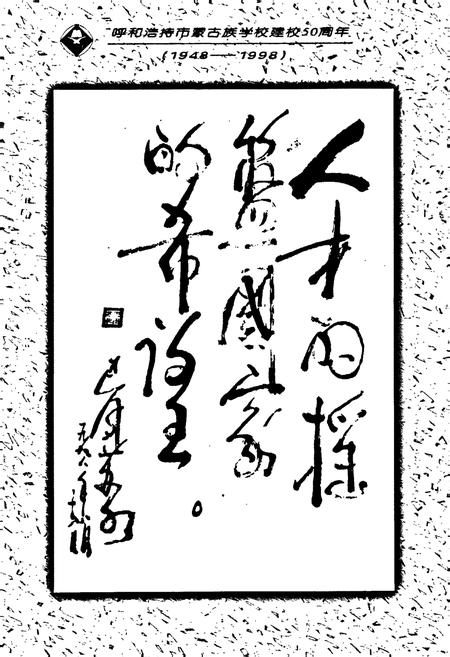 呼和浩特市蒙古族学校建校50周年
(1948——1998)
人才的摇
篮国家
的希望。
一九九八年